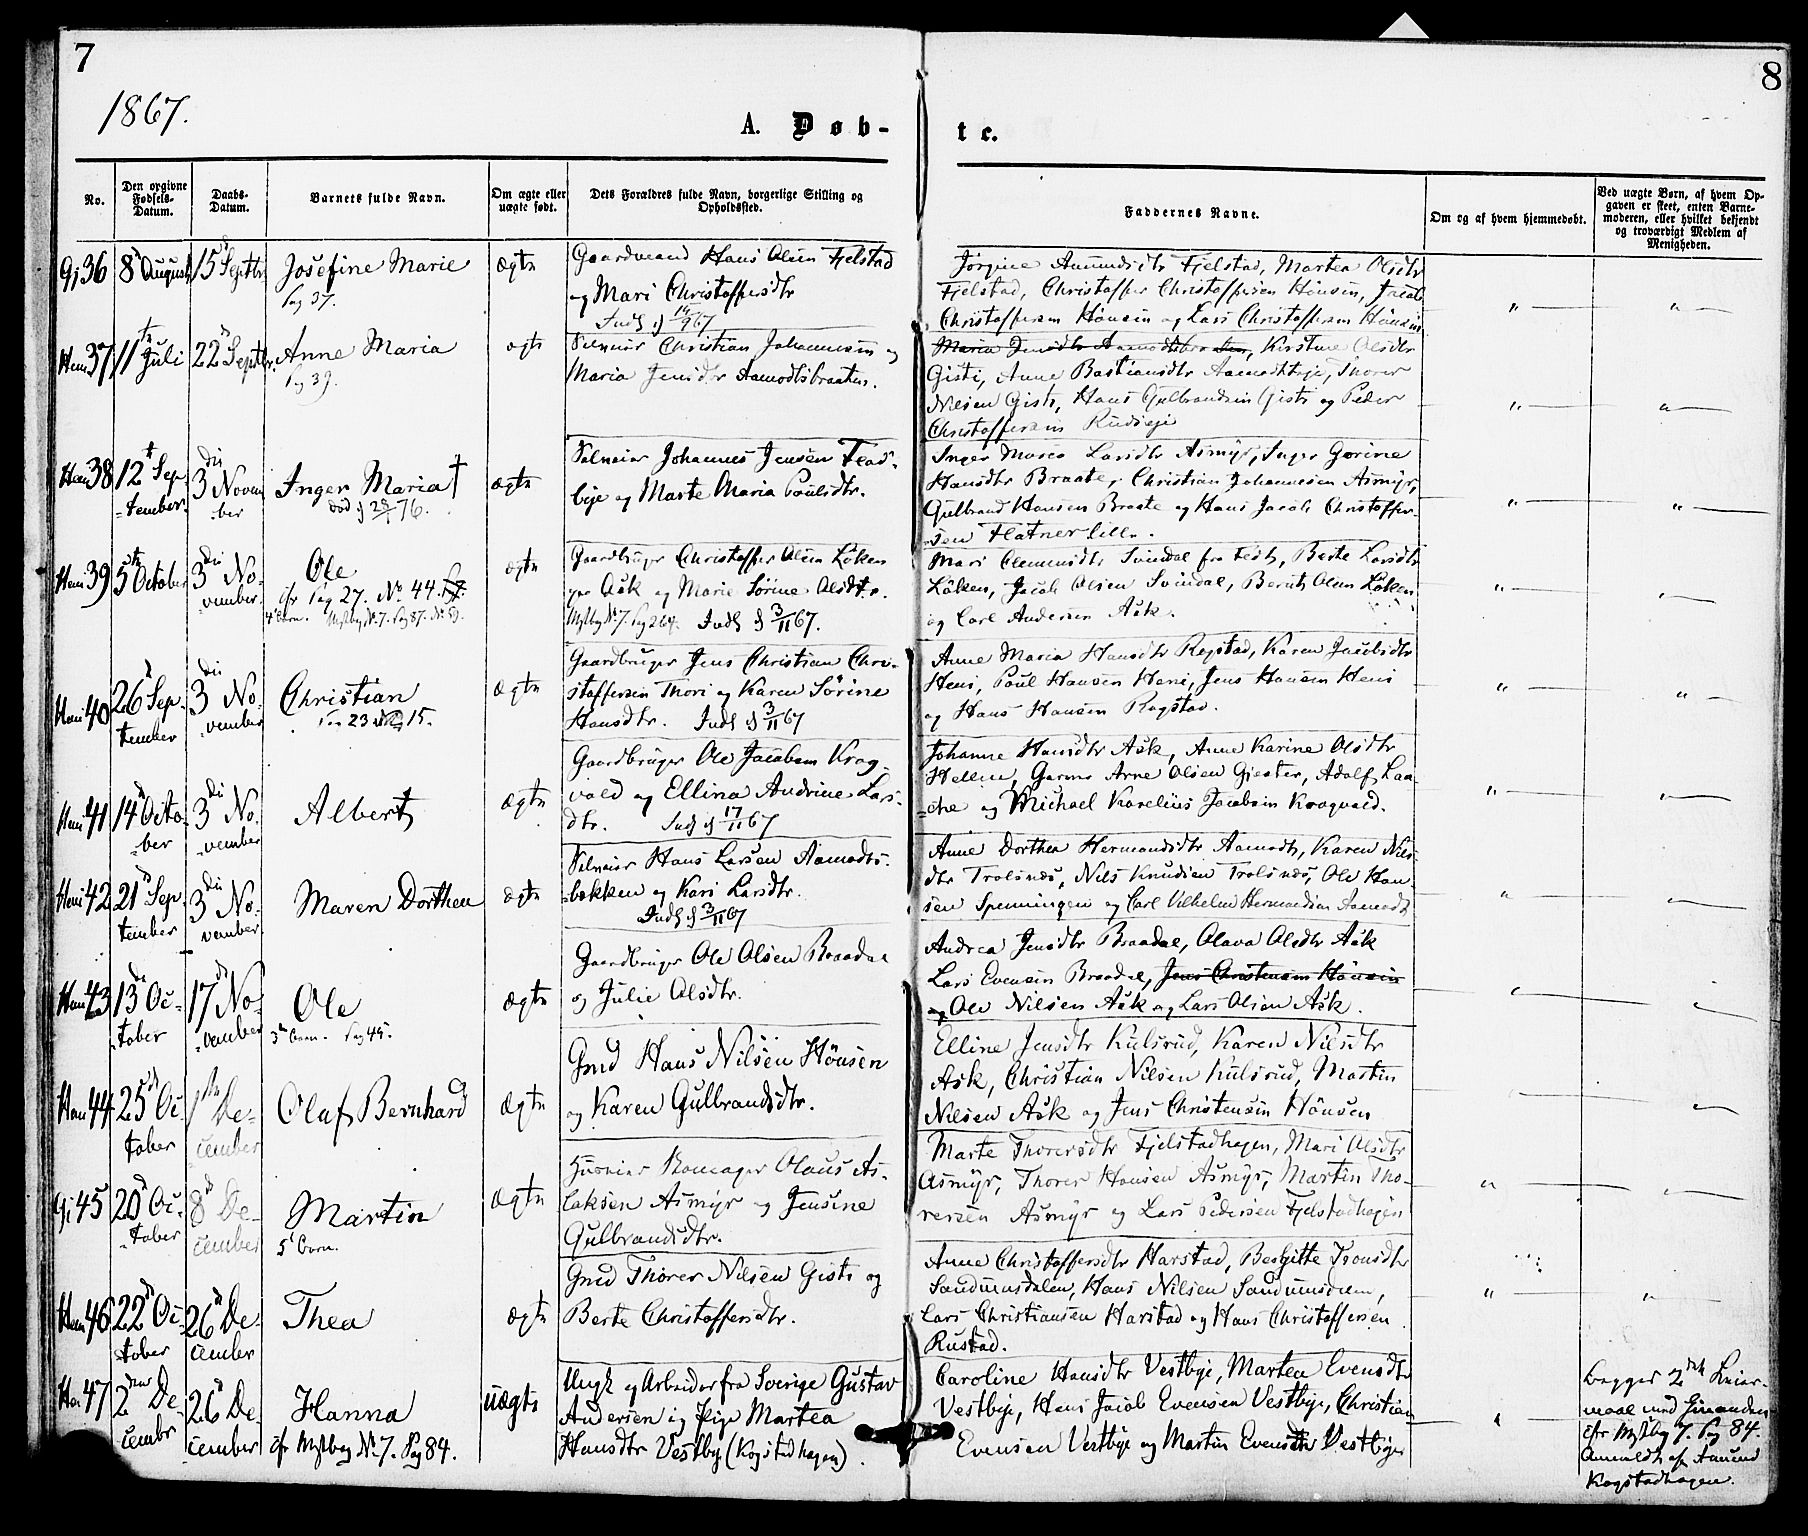 7
8
1867.
A. Døb-
te.
No.
Den opgivne Fødsels-Datum.
Daabs-Datum.
Barnets fulde Navn.
Om ægte eller uægte født.
Dets Forældres fulde Navn, borgerlige Stilling og Opholdssted.
Faddernes Navne.
Om og af hvem hjemmedøbt.
Ved uægte Børn, af hvem Op-
gaven er skeet, enten Barne-
moderen, eller hvilket bekjendt
og troværdigt Medlem af
Menigheden.
Gj 36
8de August
15de Septbr
Josefine Marie
Pag 37.
Ægte
Gaardmand Hans Olsen Fjelstad
og Mari Christoffersdtr
Jørgine Amundsdtr Fjelstad, Martea Olsdtr
Fjelstad, Christoffer Christoffersen Hönsen, Jacob
Christoffersen Hönsen og Lars Christoffersen Hönsen
Heni 37
11te Juli
22de Septbr.
Anne Maria
Pag 39.
ægte
Selveier Christian Johannesen og
Maria Jensdtr Aamodtsbraaten.
Maria Jensdtr Aamodtsbraaten, Kirstine Olsdtr
Gisti, Anne Bastiansdtr Aamodt, Thorer
Nilsen Gisti, Hans Gulbrandsen Gisti og Peder
Christoffersen Rudseje
Heni 38
12te Sep-
tember
3die Novem
ber
Inger Maria †
død
76.
ægte
Selveier Johannes Jensen Tead-
beje og Marte Maria Poulsdtr.
Inger Marea Larsdtr Asmyr, Inger Gorine
Hansdtr Braate, Christian Johannesen Asmyr,
Gulbrand Hansen Braate og Hans Jacob Christoffer-
sen Flatner lille.
Heni 39
5te October
3die No-
vember
Ole
cfr Pag 27. No 44.
4de Barn. Mstbog No 7. Pag 87. No 59.
ægte
Gaardbruger Christoffer Olsen Löken
pr Ask og Marie Sörine Olsdtr.
Mstbog No 7. Pag 264. Indf d 3/11 67.
Mari Clemmedsdtr Svindal fra Fedt, Berte Larsdtr
Löken, Jacob Olsen Svindal, Bernt Olsen Löken
og Carl Andersen Ask.
Heni 40
26de Sep-
tember
3die No-
vember
Christian
Pag 23 No 15.
ægte
Gaardbruger Jens Christian Chri-
stoffersen Thori og Karen Sörine
Hansdtr. Indf d 3/11 67
Anne Maria Hansdtr Rogstad, Karen Jacobsdtr
Heni, Poul Hansen Heni, Jens Hansen Heni
og Hans Hansen Rogstad.
Heni 41
14de Octo-
ber
3die No-
vember
Albert
Ægte
Gaardbruger Ole Jacobsen Krog-
vold og Ellina Andrine Lars-
dtr. Indf d 17/11 67
Johanne Hansdtr Ask, Anne Karine Olsdtr
Hellen, Garver Arne Olsen Gjester, Adolf Laa-
che og Michael Karelius Jacobsen Krogvold.
Heni 42
21de Sep-
tember
3die No-
vember
Maren Dorthea
ægte
Selveier Hans Larsen Aamodts-
bekken og Kari Larsdtr.
Indf d 3/11 67
Anne Dorthea Hermandsdtr Aamodt, Karen Nils-
dtr Trolsnes, Nils Knudsen Trolsnes, Ole Han-
sen Spenningen og Carl Vilhelm Hermandsen Aamodt
Heni 43
13de Oc-
tober
17de No-
vember
Ole
3de Barn. Pag 45.
Ægte
Gaardbruger Ole Olsen Braadal
og Julie Olsdtr.
Andrea Jensdtr Braadal, Olava Olsdtr Ask
Lars Evensen Braadal, Jens Christensen Hönsen
og Ole Nilsen Ask og Lars Olsen Ask.
Heni 44
25de Oc-
tober
1ste De-
cember
Olaf Bernhard
Ægte
Gmd Hans Nilsen Hönsen
og Karen Gulbrandsdtr.
Elline Jensdtr Kulsrud, Karen Nilsdtr
Ask, Christian Nilsen Kulsrud, Martin
Nilsen Ask og Jens Christensen Hönsen
Gj 45
20de Oc-
tober
8de De-
cember
Martin
5te Barn.
Ægte
Huseier Olaus As-
laksen Asmyr og Jensine
Gulbrandsdtr.
Marte Thorersdtr Fjelstadhagen, Mari Olsdtr
Asmyr, Thorer Hansen Asmyr, Martin Tho-
rersen Asmyr og Lars Pedersen Fjelstadhagen
Heni 46
22de Oc-
tober
26de De-
cember
Thea
ægte
Gmd Thorer Nilsen Gisti og
Berte Christoffersdtr.
Anne Christoffersdtr Harstad, Bergitte Tronsdtr
Sandumsdalen, Hans Nilsen Sandumsdalen,
Lars Christiansen Harstad og Hans Christoffersen
Rustad.
47
2den De-
cembr
26de De-
cember
Hanna
cfr Mstbog No 7. Pag 84.
uægte
Ungk og Arbeider fra Sverige Gustav
Andersen og Pige Martea
Hansdtr Vestbye (Kogstadhagen).
Caroline Hansdtr Vestbye, Martea Evensdtr
Vestbye, Hans Jacob Evensen Vestbye, Christian
Evensen Vestbye og Martin Evensdtr Vestbye
Begges 2det Leier-
maal med hinanden
cfr Mstbog 7. Pag 84.
Anmeldt af Amund
Kogstadhagen.